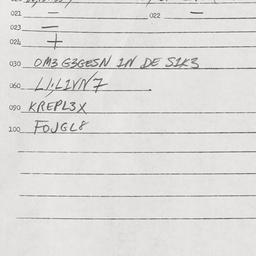 021 — 022 —
023 —
024 +
030 OM3 G3GESN 1N DE S1K3
060
090 KREPL3X
100 FOJGL8